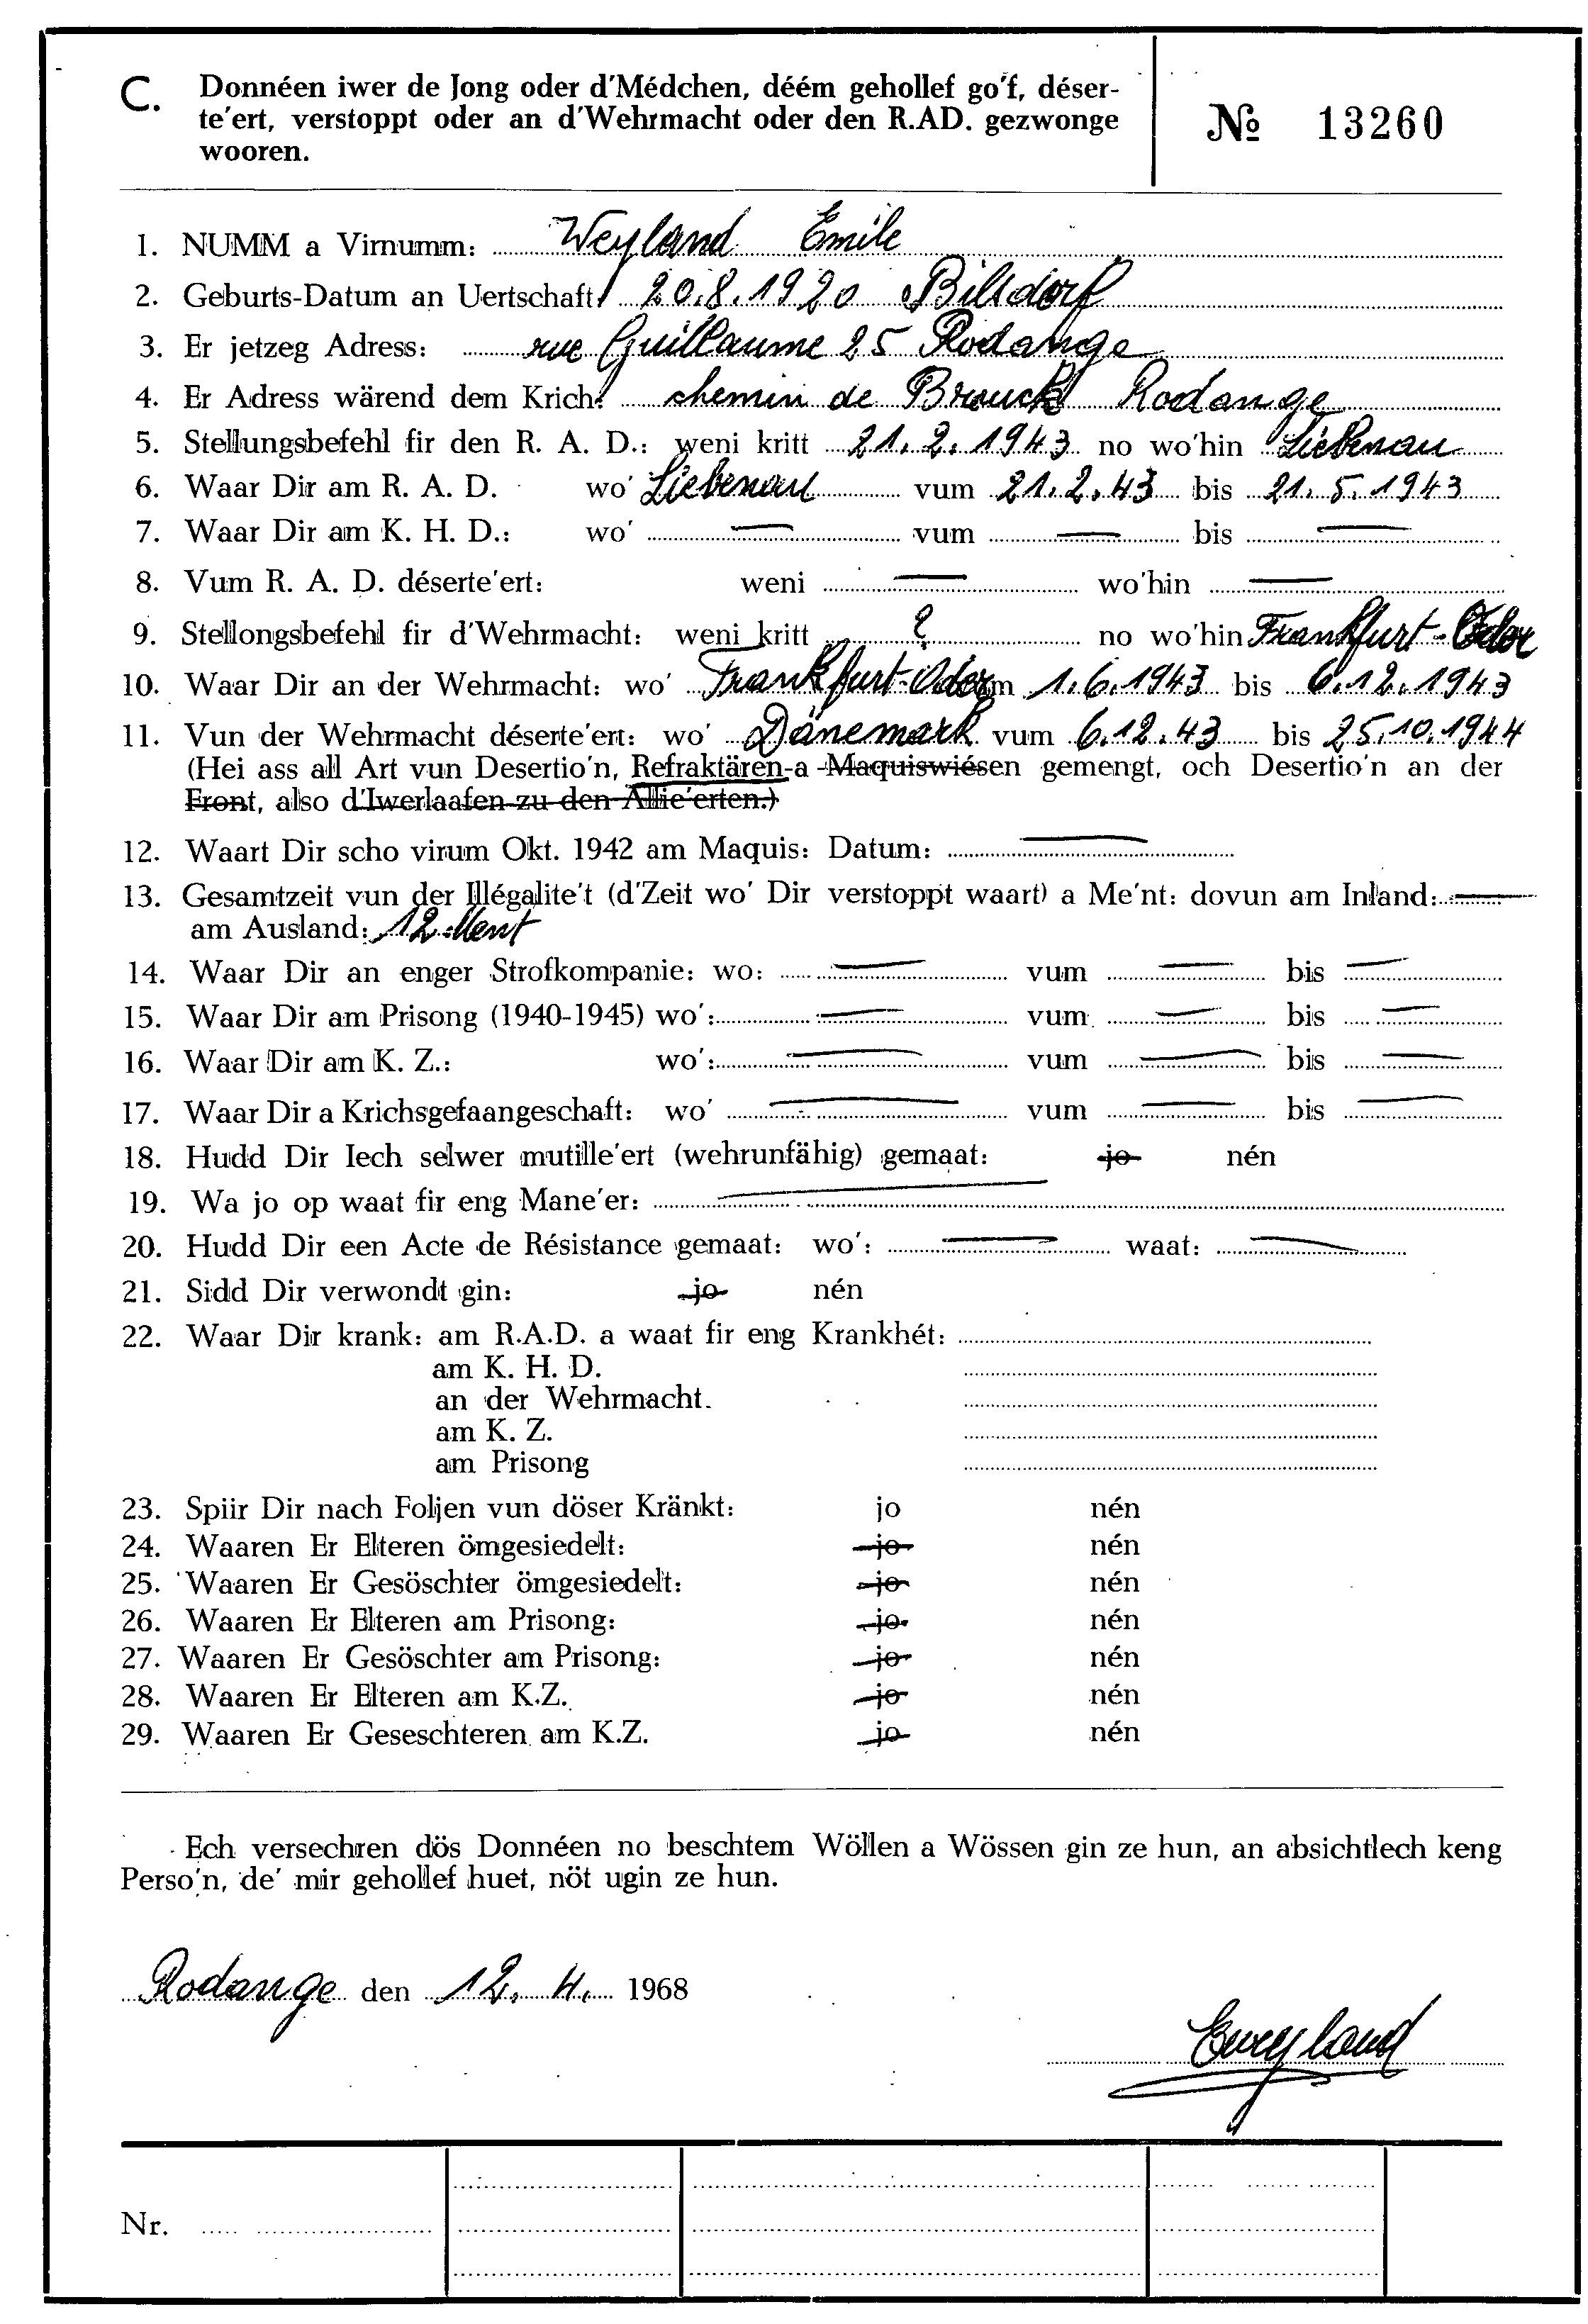 C. Donnéen iwer de Jong oder d'Médchen, déém gehollef go'f, déser-
te'ert, verstoppt oder an d'Wehrmacht oder den R.AD. gezwonge
wooren.
№ 13260
1. NUMM a Virnumm: Weyland Emile
2. Geburts-Datum an Uertschaft: 20.8.1920 Bilsdorf
3. Er jetzeg Adress: rue Guillaume 25 Rodange
4. Er Adress wärend dem Krich: chemin de Brouck Rodange
5. Stellungsbefehl fir den R. A. D.: weni kritt 21.2.1943 no wo'hin Liebenau
6. Waar Dir am R. A. D. wo' Liebenau vum 21.2.43 bis 21.5.1943
7. Waar Dir am K. H. D.: wo' — vum — bis —
8. Vum R. A. D. déserte'ert: weni — wo'hin —
9. Stellongsbefehl fir d'Wehrmacht: weni kritt ? no wo'hin Frankfurt-Oder
10. Waar Dir an der Wehrmacht: wo' Frankfurt-Oder vum 1.6.1943 bis 6.12.1943
11. Vun der Wehrmacht déserte'ert: wo' Dänemark vum 6.12.43 bis 25.10.1944
(Hei ass all Art vun Desertio'n, Refraktären-a -Maquiswiésen gemengt, och Desertio'n an der
Front, also d'Iwerlaafen zu den Allie'erten.)
12. Waart Dir scho virum Okt. 1942 am Maquis: Datum: —
13. Gesamtzeit vun der Illégalite't (d'Zeit wo' Dir verstoppt waart) a Me'nt: dovun am Inland: —
am Ausland: 12 Ment
14. Waar Dir an enger Strofkompanie: wo: — vum — bis —
15. Waar Dir am Prisong (1940-1945) wo': — vum — bis —
16. Waar Dir am K. Z.: wo': — vum — bis —
17. Waar Dir a Krichsgefaangeschaft: wo' — vum — bis —
18. Hudd Dir Iech selwer mutille'ert (wehrunfähig) gemaat: jo nén
19. Wa jo op waat fir eng Mane'er: —
20. Hudd Dir een Acte de Résistance gemaat: wo': — waat: —
21. Sidd Dir verwondt gin: jo nén
22. Waar Dir krank: am R.A.D. a waat fir eng Krankhét:
am K. H. D.
an der Wehrmacht.
am K. Z.
am Prisong
23. Spiir Dir nach Foljen vun döser Kränkt: jo nén
24. Waaren Er Elteren ömgesiedelt: jo nén
25. Waaren Er Gesöschter ömgesiedelt: jo nén
26. Waaren Er Elteren am Prisong: jo nén
27. Waaren Er Gesöschter am Prisong: jo nén
28. Waaren Er Elteren am K.Z. jo nén
29. Waaren Er Geseschteren am K.Z. jo nén
Ech versechren dös Donnéen no beschtem Wöllen a Wössen gin ze hun, an absichtlech keng
Perso'n, de' mir gehollef huet, nöt ugin ze hun.
Rodange den 12. 4. 1968
EWeyland
Nr.